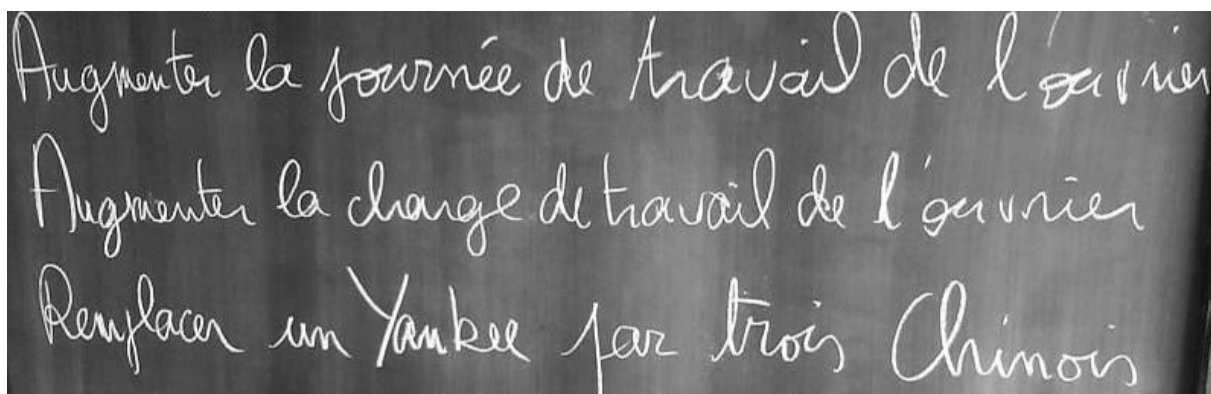 Augmenter la journée de travail de l'ouvrier
Augmenter la charge de travail de l'ouvrier
Remplacer un Yankee par trois Chinois